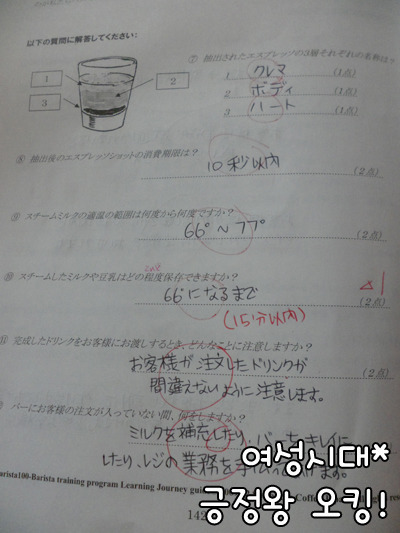 以下の質問に解答してください:
⑦ 抽出されたエスプレッソの3層それぞれの名称は?
1 クレマ (1点)
2 ボディ (1点)
3 ハート (1点)
1
2
3
⑧ 抽出後のエスプレッソショットの消費期限は?
10秒以内 (2点)
⑨ スチームミルクの適温の範囲は何度から何度ですか?
66°~77° (2点)
⑩ スチームしたミルクや豆乳はどの程度保存できますか?
66°になるまで (2点)
(15分以内)
△1
⑪ 完成したドリンクをお客様にお渡しするとき、どんなことに注意しますか?
お客様が注文したドリンクが (2点)
間違えないように注意します。
バーにお客様の注文が入っていない間、何をしますか?
ミルクを補充したり、バーをキレイに
したり、レジの業務を手伝
ます。
arista100-Barista training program Learning Journey gui
Coffe
142
여성시대*
긍정왕 오킹!